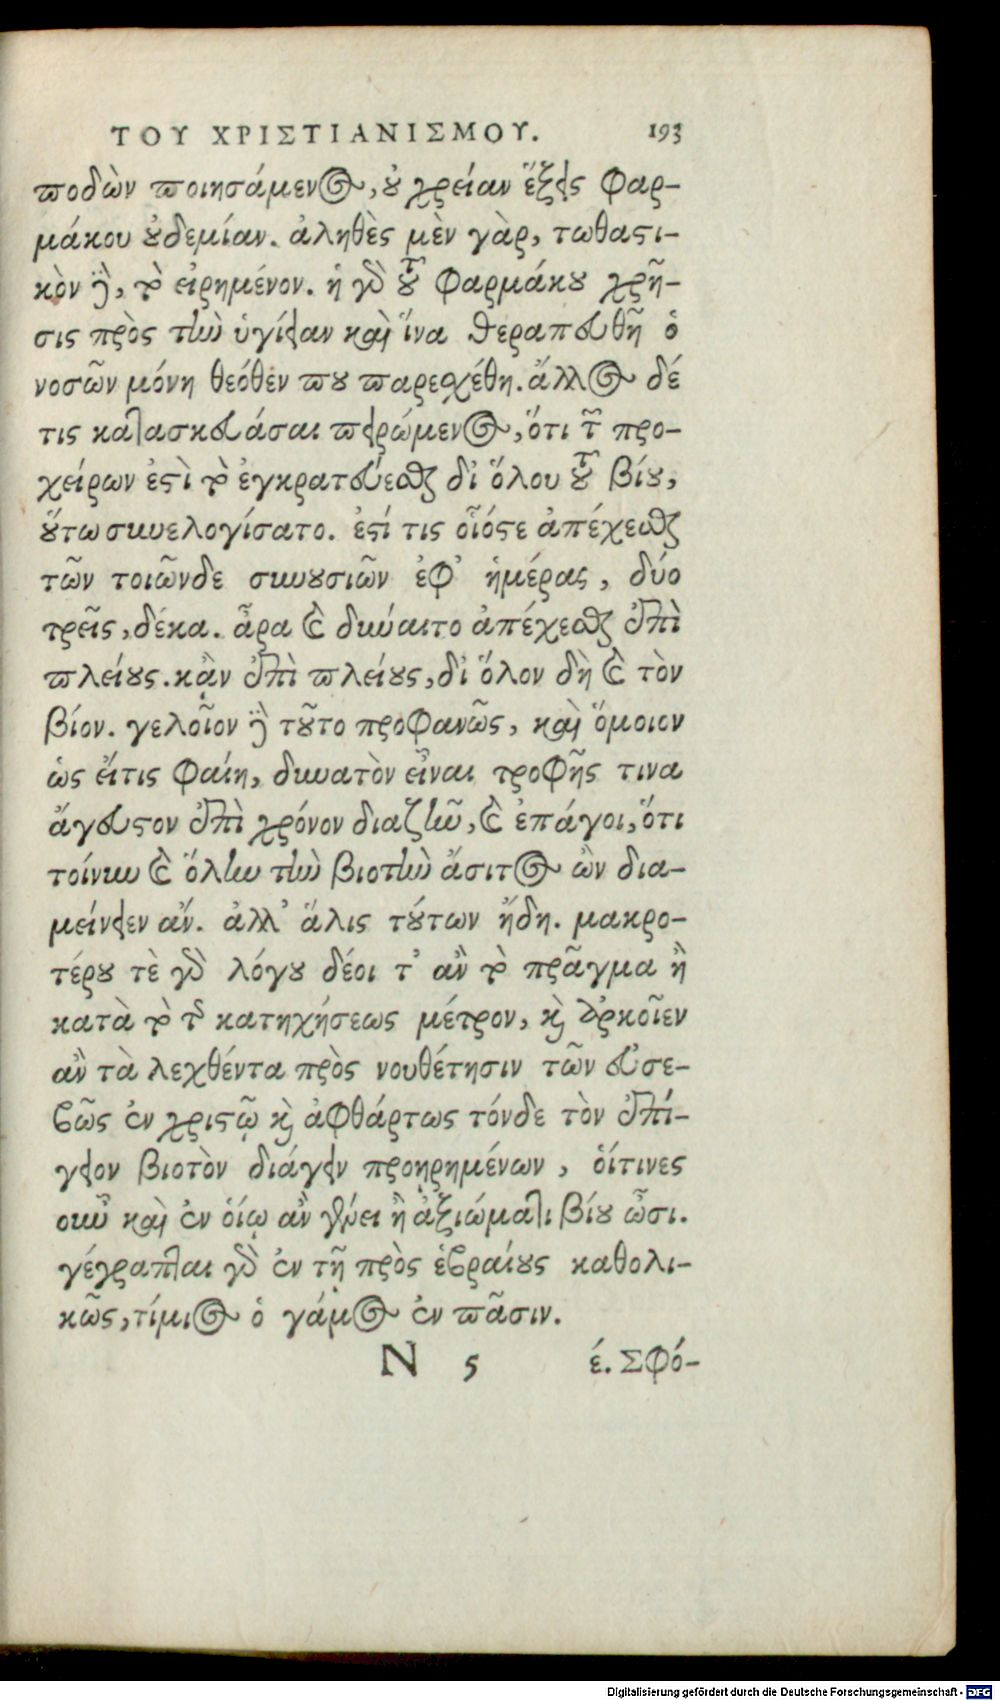 ΤΟΥ ΧΡΙΣΤΙΑΝΙΣΜΟΥ. 193
ϖοδὼν ϖοιησάμενος, ȣ̓ χρείαν ἕξεις φαρ-
μάκου ȣ̓δεμίαν. ἀληθὲς μὲν γὰρ, τωθαϛι-
κὸν δὲ, τὸ εἰρημένον. ἡ γὸ τȣ͂ φαρμάκȣ χρῆ-
σις πρὸς τὴν ὑγίειαν καὶ ἵνα θεραπευθῇ ὁ
νοσῶν μόνη θεόθεν ϖȣ ϖαρεσχέθη. ἄλλος δέ
τις κατασκευάσαι ϖειρώμενος, ὅτι τῶν προ-
χείρων ἐϛὶ τὸ ἐγκρατεύεσθαι δι᾽ ὅλου τȣ͂ βίȣ,
ȣ̔́τω συνελογίσατο. ἐϛί τις οἷόϛε ἀπέχεσθαι
τῶν τοιῶνδε συνȣσιῶν ἐφ᾽ ἡμέρας, δύο
τρεῖς, δέκα. ἆρα καὶ δύναιτο ἀπέχεσθαι ἐπὶ
ϖλείȣς. κἂν ἐπὶ ϖλείȣς, δι᾽ ὅλον δὴ καὶ τὸν
βίον. γελοῖον δὲ τȣ͂το προφανῶς, καὶ ὅμοιον
ὡς εἴτις φαίη, δυνατὸν εἶναι τροφῆς τινα
ἄγευϛον ἐπὶ χρόνον διαζῆν, καὶ ἐπάγοι, ὅτι
τοίνυν καὶ ὅλην τὴν βιοτὴν ἄσιτος ὢν δια-
μείνειεν ἄν. ἀλλ᾽ ἅλις τȣ́των ἤδη. μακρο-
τέρȣ τὲ γὸ λόγȣ δέοι τ᾽ ἂν τὸ πρᾶγμα ἢ
κατὰ τὸ τῆς κατηχήσεως μέτρον, καὶ ἀρκοῖεν
ἂν τὰ λεχθέντα πρὸς νουθέτησιν τῶν εὐσε-
βῶς ἐν χριϛῷ καὶ ἀφθάρτως τόνδε τὸν ἐπί-
γειον βιοτὸν διάγειν προῃρημένων, οἵτινες
οὖν καὶ ἐν οἵῳ ἂν γένει ἢ ἀξιώματι βίȣ ὦσι.
γέγραπται γὸ ἐν τῇ πρὸς ἑβραίȣς καθολι-
κῶς, τίμιος ὁ γάμος ἐν ϖᾶσιν.
N 5 έ. Σφό-
Digitalisierung gefördert durch die Deutsche Forschungsgemeinschaft - DFG